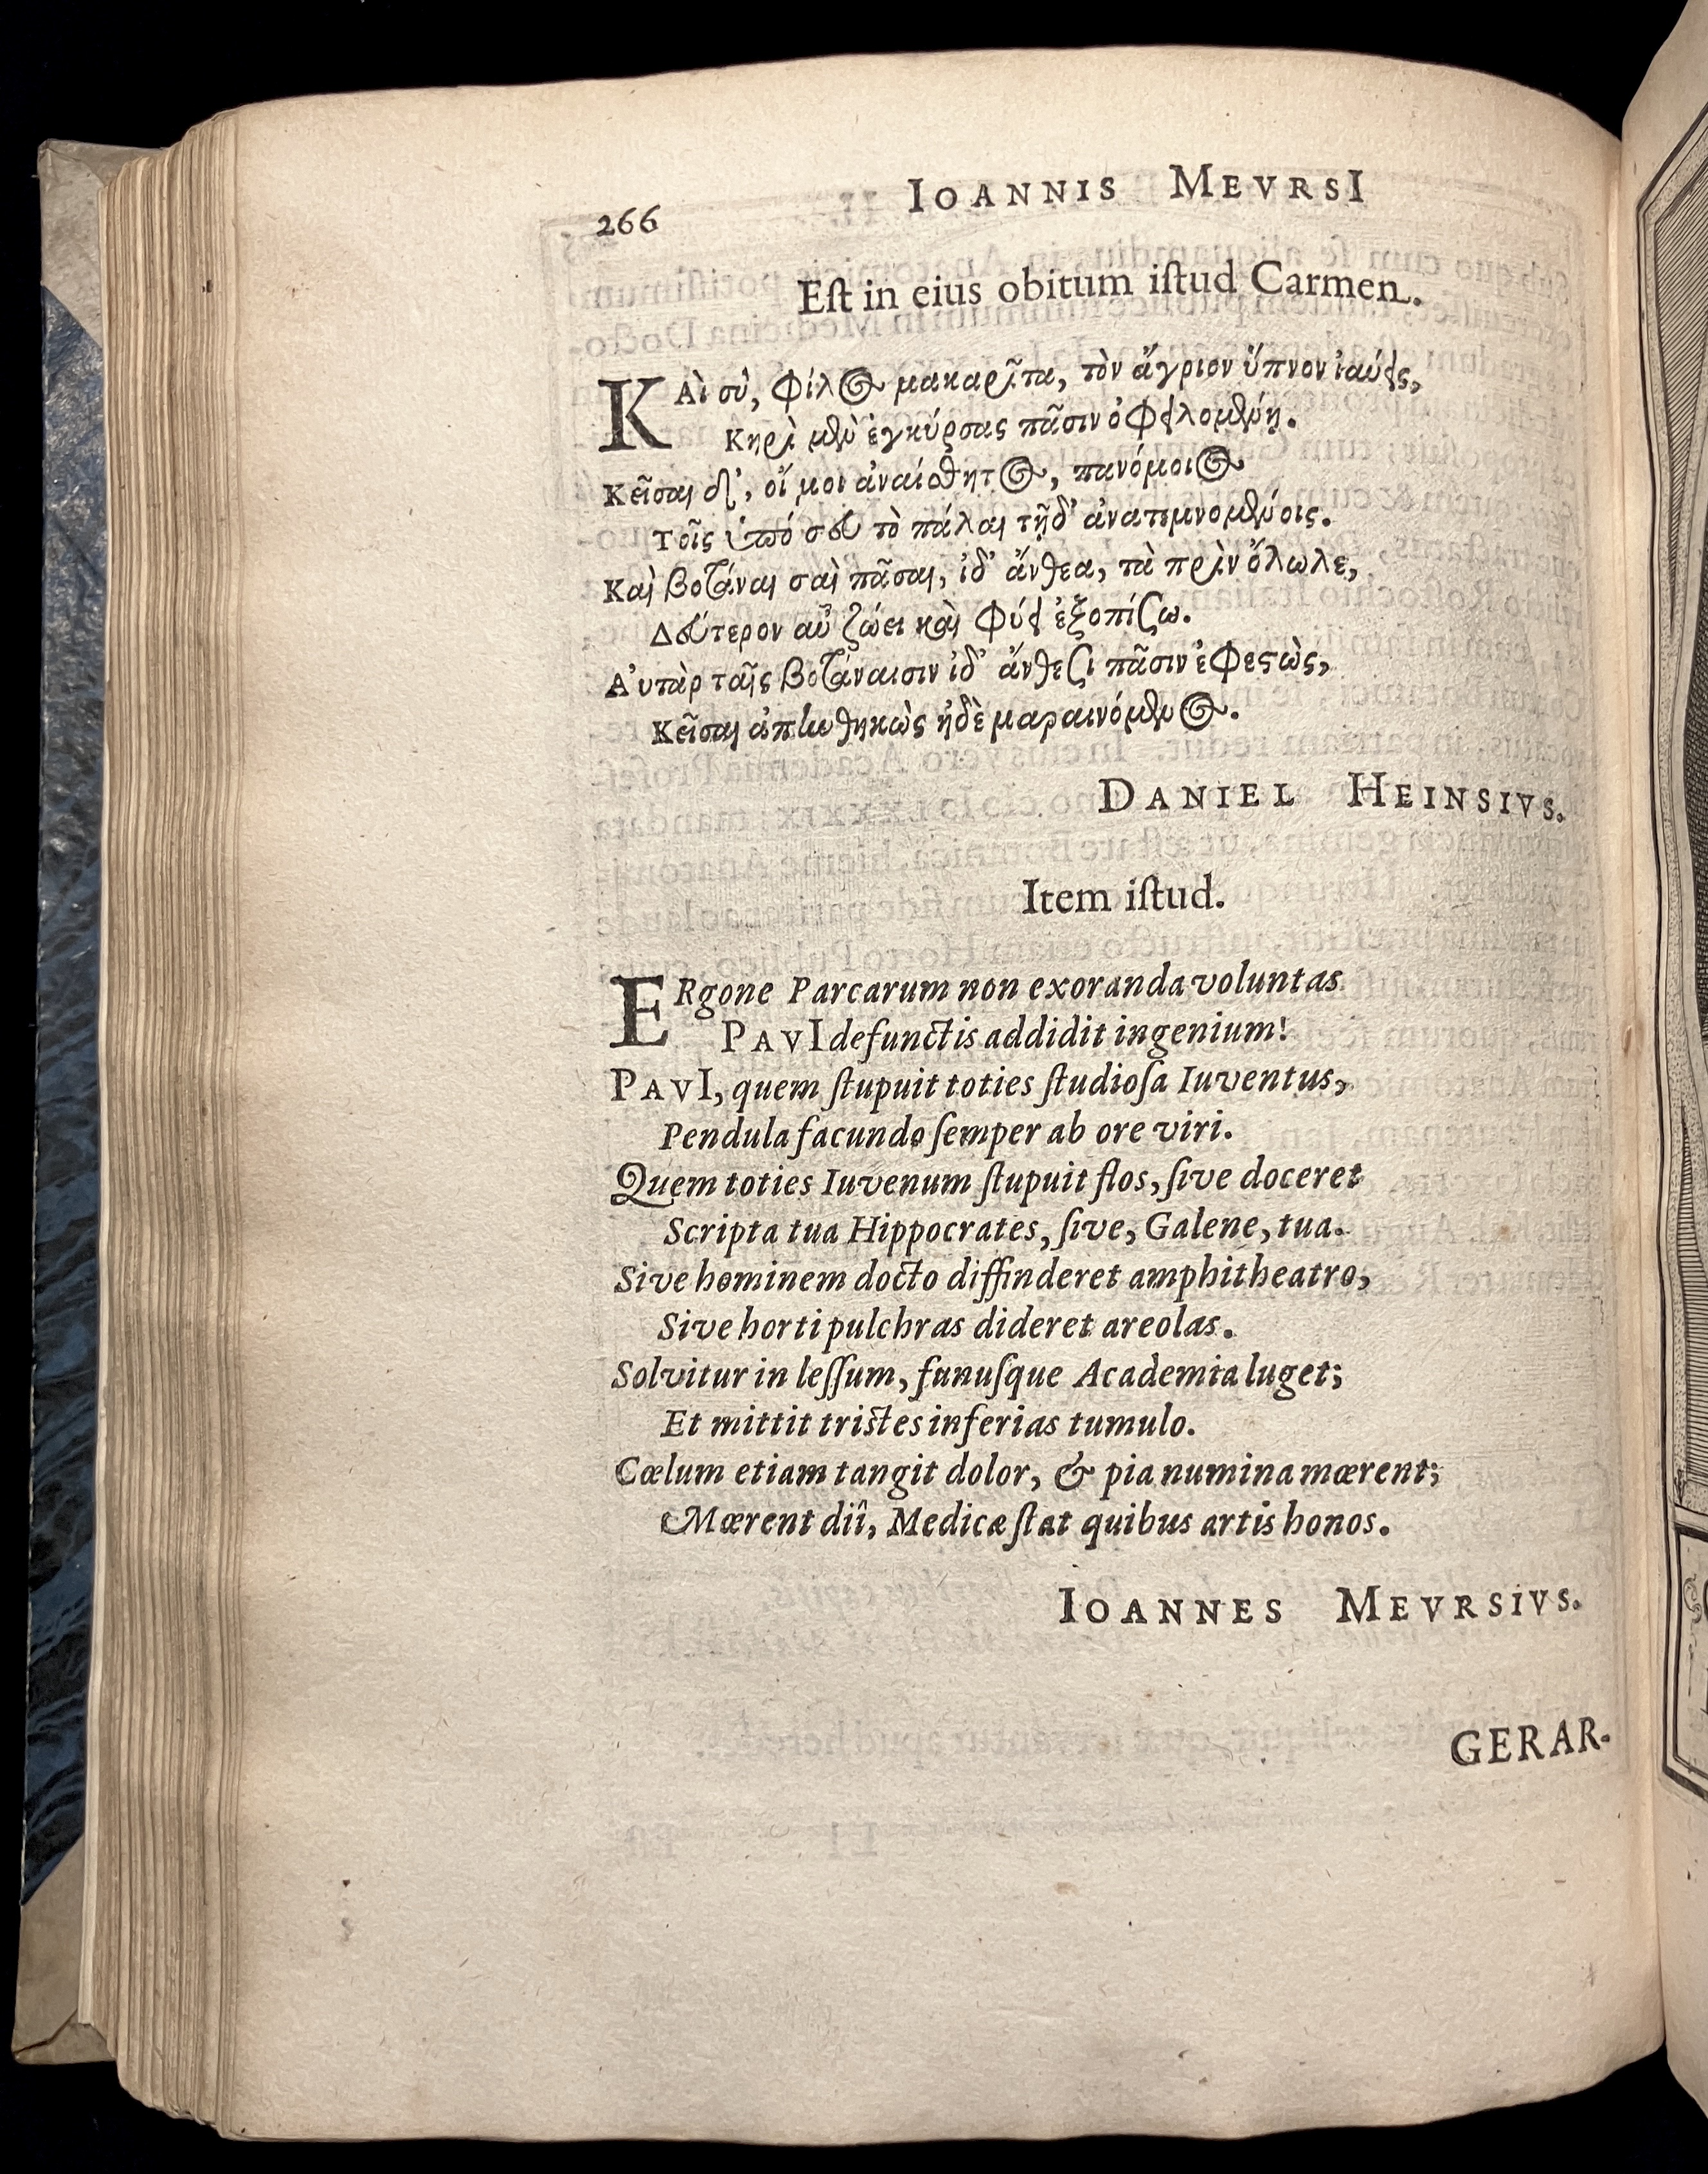 266 IOANNIS MEVRSI
Eſt in eius obitum iſtud Carmen.
ΚΑὶ σύ, φίλος μακαρῖτα, τὸν ἄγριον ὕπνον ἰαύεις,
Κηρὶ μὲν ἐγκύρσας πᾶσιν ὀφειλομένῃ.
Κεῖσαι δ', οἴ μοι ἀναίσθητος, πανόμοιος
Τοῖς ὑπό σου τὸ πάλαι τῇδ' ἀνατεμνομένοις.
Καὶ βοτάναι σαὶ πᾶσαι, ἰδ' ἄνθεα, τὰ πρὶν ὄλωλε,
Δεύτερον αὖ ζώει καὶ φύει ἐξοπίσω.
Αὐτὰρ ταῖς βοτάναισιν ἰδ' ἄνθεσι πᾶσιν ἐφεστὼς,
Κεῖσαι ἀπηνθηκὼς ἠδὲ μαραινόμενος.
DANIEL HEINSIVS.
Item iſtud.
ERgone Parcarum non exoranda voluntas
PAVI defunctis addidit ingenium!
PAVI, quem ſtupuit toties ſtudioſa Iuventus,
Pendula facundo ſemper ab ore viri.
Quem toties Iuvenum ſtupuit flos, ſive doceret
Scripta tua Hippocrates, ſive, Galene, tua.
Sive hominem docto diffinderet amphitheatro,
Sive horti pulchras dideret areolas.
Solvitur in leſſum, funuſque Academia luget;
Et mittit tristes inferias tumulo.
Cœlum etiam tangit dolor, & pia numina mœrent;
Mœrent diî, Medicæ ſtat quibus artis honos.
IOANNES MEVRSIVS.
GERAR-